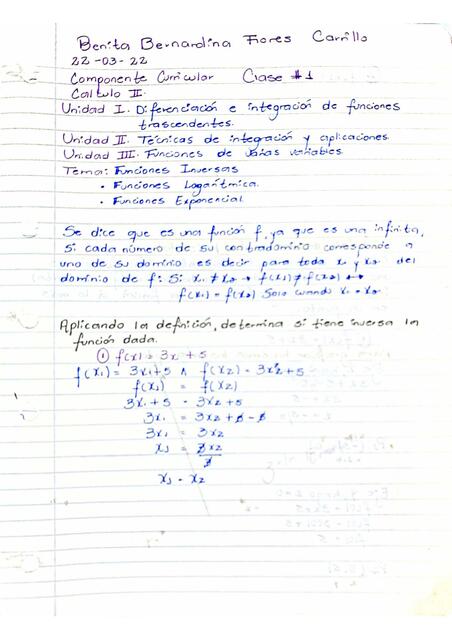 Benita Bernardina Flores Carrillo
22-03-22
Componente Curricular Clase #1
Calculo II.
Unidad I. Diferenciación e integración de funciones
trascendentes.
Unidad II. Técnicas de integración y aplicaciones.
Unidad III. Funciones de varias variables.
Tema: Funciones Inversas
• Funciones Logarítmica.
• Funciones Exponencial.
Se dice que es una función f, ya que es una infinita,
Si cada número de su contradominio corresponde a
uno de su dominio es decir para toda x₁ y x₂ del
dominio de f: Si x₁ ≠ x₂ → f(x₁) ≠ f(x₂) ↔
f(x₁) = f(x₂) Solo cuando x₁ = x₂
Aplicando la definición, determina si tiene inversa la
función dada.
① f(x) = 3x + 5
f(x₁) = 3x₁+5 ∧ f(x₂) = 3x₂+5
f(x₁) = f(x₂)
3x₁+5 = 3x₂+5
3x₁ = 3x₂+5-5
3x₁ = 3x₂
x₁ = 3x₂/3
x₁ = x₂